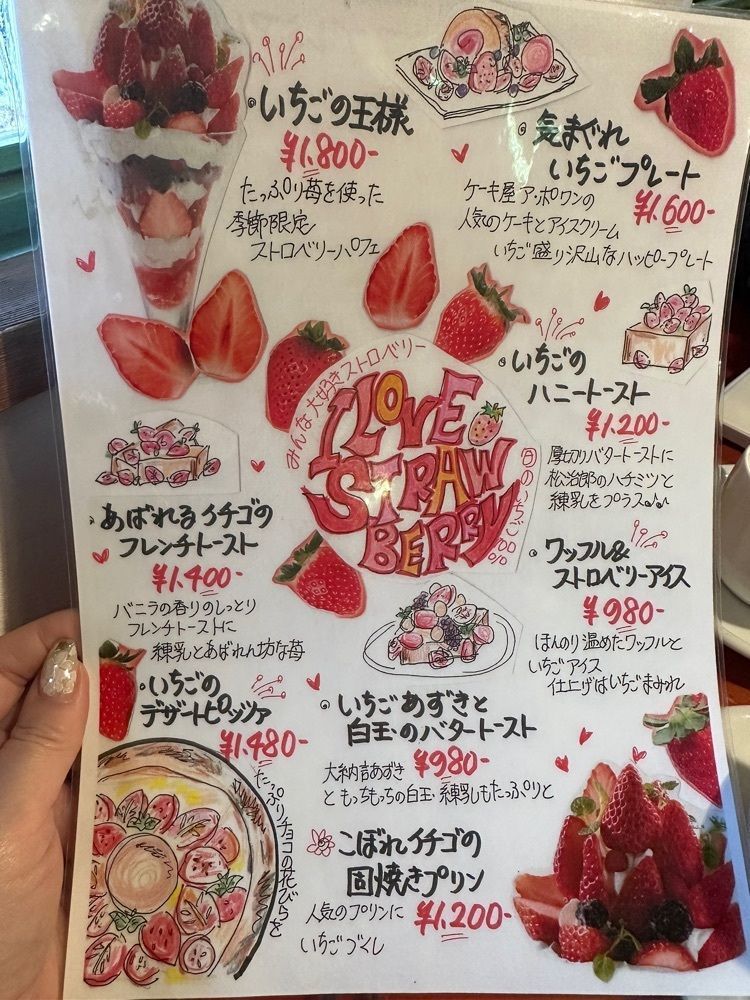 いちごの王様
¥1.800-
たっぷり苺を使った
季節限定
ストロベリーパフェ
気まぐれ
いちごプレート
¥1.600-
ケーキ屋ア・ポワンの
人気のケーキとアイスクリーム
いちご盛り沢山なハッピープレート
いちごの
ハニートースト
¥1.200-
厚切りバタートーストに
松治郎のハチミツと
練乳をプラス♪♪
みんな大好きストロベリー
I LOVE
STRAW
BERRY
旬のいちご100%
あばれるイチゴの
フレンチトースト
¥1.400-
バニラの香りのしっとり
フレンチトーストに
練乳とあばれん坊な苺
ワッフル&
ストロベリーアイス
¥980-
ほんのり温めたワッフルと
いちごアイス
仕上げはいちごまみれ
いちごの
デザートピッツァ
¥1.480-
たっぷりチョコの花びらを
いちごあずきと
白玉のバタートースト
¥980-
大納言あずき
ともっちもっちの白玉 練乳もたっぷりと
こぼれイチゴの
固焼きプリン
¥1.200-
人気のプリンに
いちごづくし